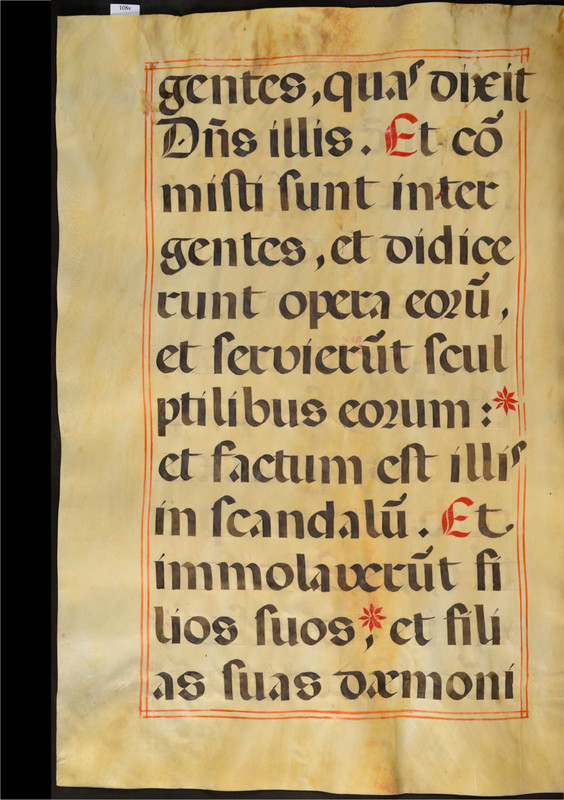 108v
gentes, quas dixit
Dn̄s illis. Et cō
misti sunt inter
gentes, et didice
runt opera eorū,
et servierūt scul
ptilibus eorum :*
et factum est illis
in scandalū. Et
immolaverūt fi
lios suos,* et fili
as suas dæmoni